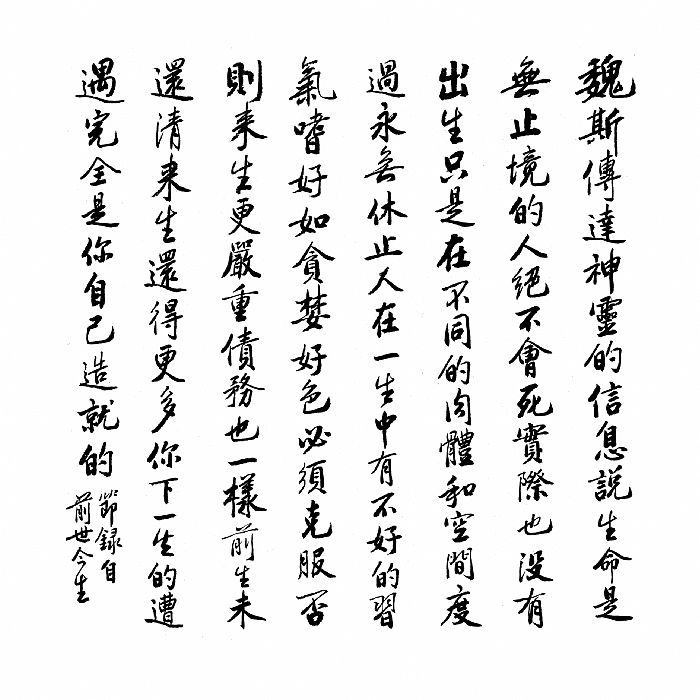 魏斯傳達神靈的信息說生命是
無止境的人絕不會死實際也没有
出生只是在不同的肉體和空間度
過永無休止人在一生中有不好的習
氣嗜好如貪婪好色必須克服否
則来生更嚴重債務也一樣前生未
還清来生還得更多你下一生的遭
遇完全是你自己造就的
節錄自
前世今生